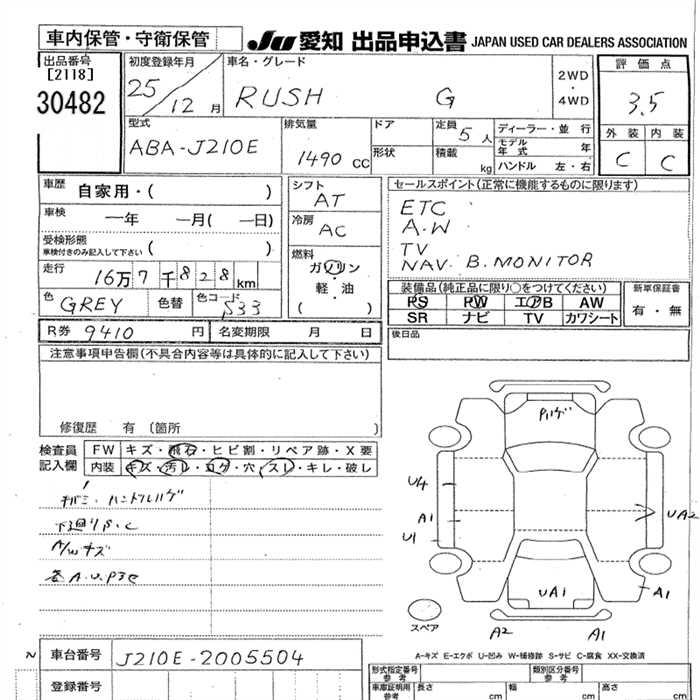 車内保管・守衛保管
JU 愛知 出品申込書 JAPAN USED CAR DEALERS ASSOCIATION
出品番号
[2118]
30482
初度登録年月
25 / 12 月
車名・グレード
RUSH G
2WD
・
4WD
評価点
3.5
外装 内装
C C
型式
ABA-J210E
排気量
1490 CC
ドア
形状
定員 5 人
積載 kg
ディーラー・並行
モデル年式 年
ハンドル 左・右
車歴 自家用・( )
車検 一年 一月(一日)
受検形態
車検付きのみ記入して下さい ( )
走行 16万7千828km
色 GREY 色替 色コード S33
シフト
AT
冷房
AC
燃料
ガソリン
・
軽・油
( )
セールスポイント(正常に機能するものに限ります)
ETC
A.W
TV
NAV. B.MONITOR
装備品(純正品に限り○をつけてください)
PS PW エアB AW
SR ナビ TV カワシート
新車保証書
有・無
R券 9410 円 名変期限 月 日
後日品
注意事項申告欄(不具合内容等は具体的に記入して下さい)
修復歴 有 (箇所 )
検査員
記入欄
FW キズ・飛石・ヒビ割・リペア跡・X要
内装 キズ・汚レ・コゲ・穴・スレ・キレ・破レ
下廻りS.C
A/Wキズ
P ハゲ
U4
A1
U1
UA2
UA1
A1
A2
A1
スペア
A-キズ E-エクボ U-凹み W-補修跡 S-サビ C-腐食 XX-交換済
車台番号 J210E-2005504
登録番号
形式指定番号
参考
類別区分番号
参考
車庫証明用
参考
長さ cm 幅 cm 高さ cm